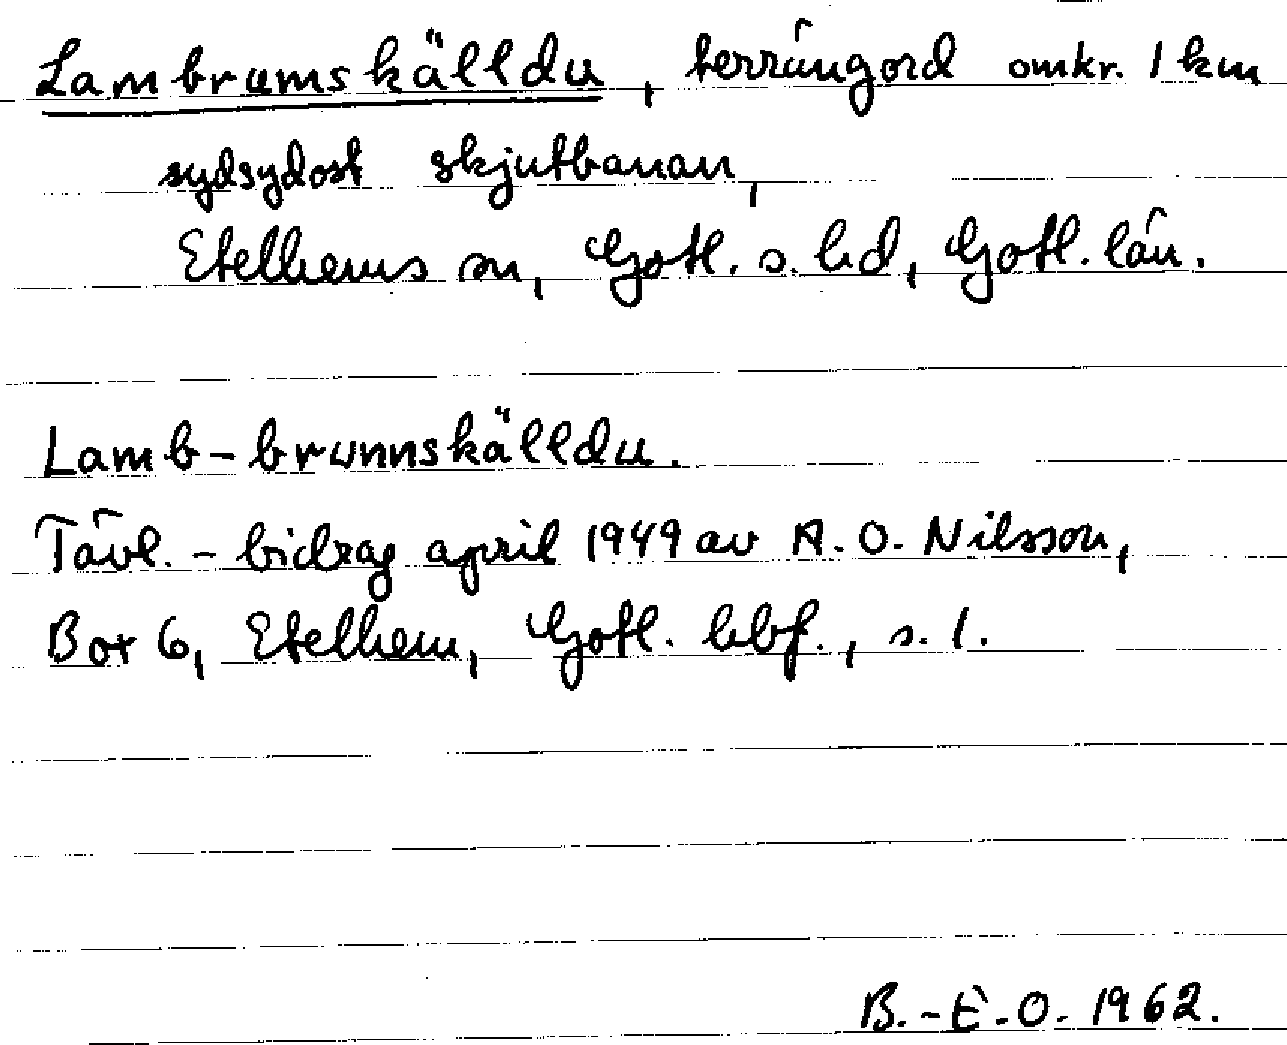 Lambrumskälldu, terrängord omkr. 1 km
sydsydost skjutbanan,
Etelhems sn, Gotl. s. hd, Gotl. län.
Lamb-brunnskälldu.
Tävl.-bidrag april 1949 av A. O. Nilsson,
Box 6, Etelhem, Gotl. hbf., s. 1.
B.-E. O. 1962.